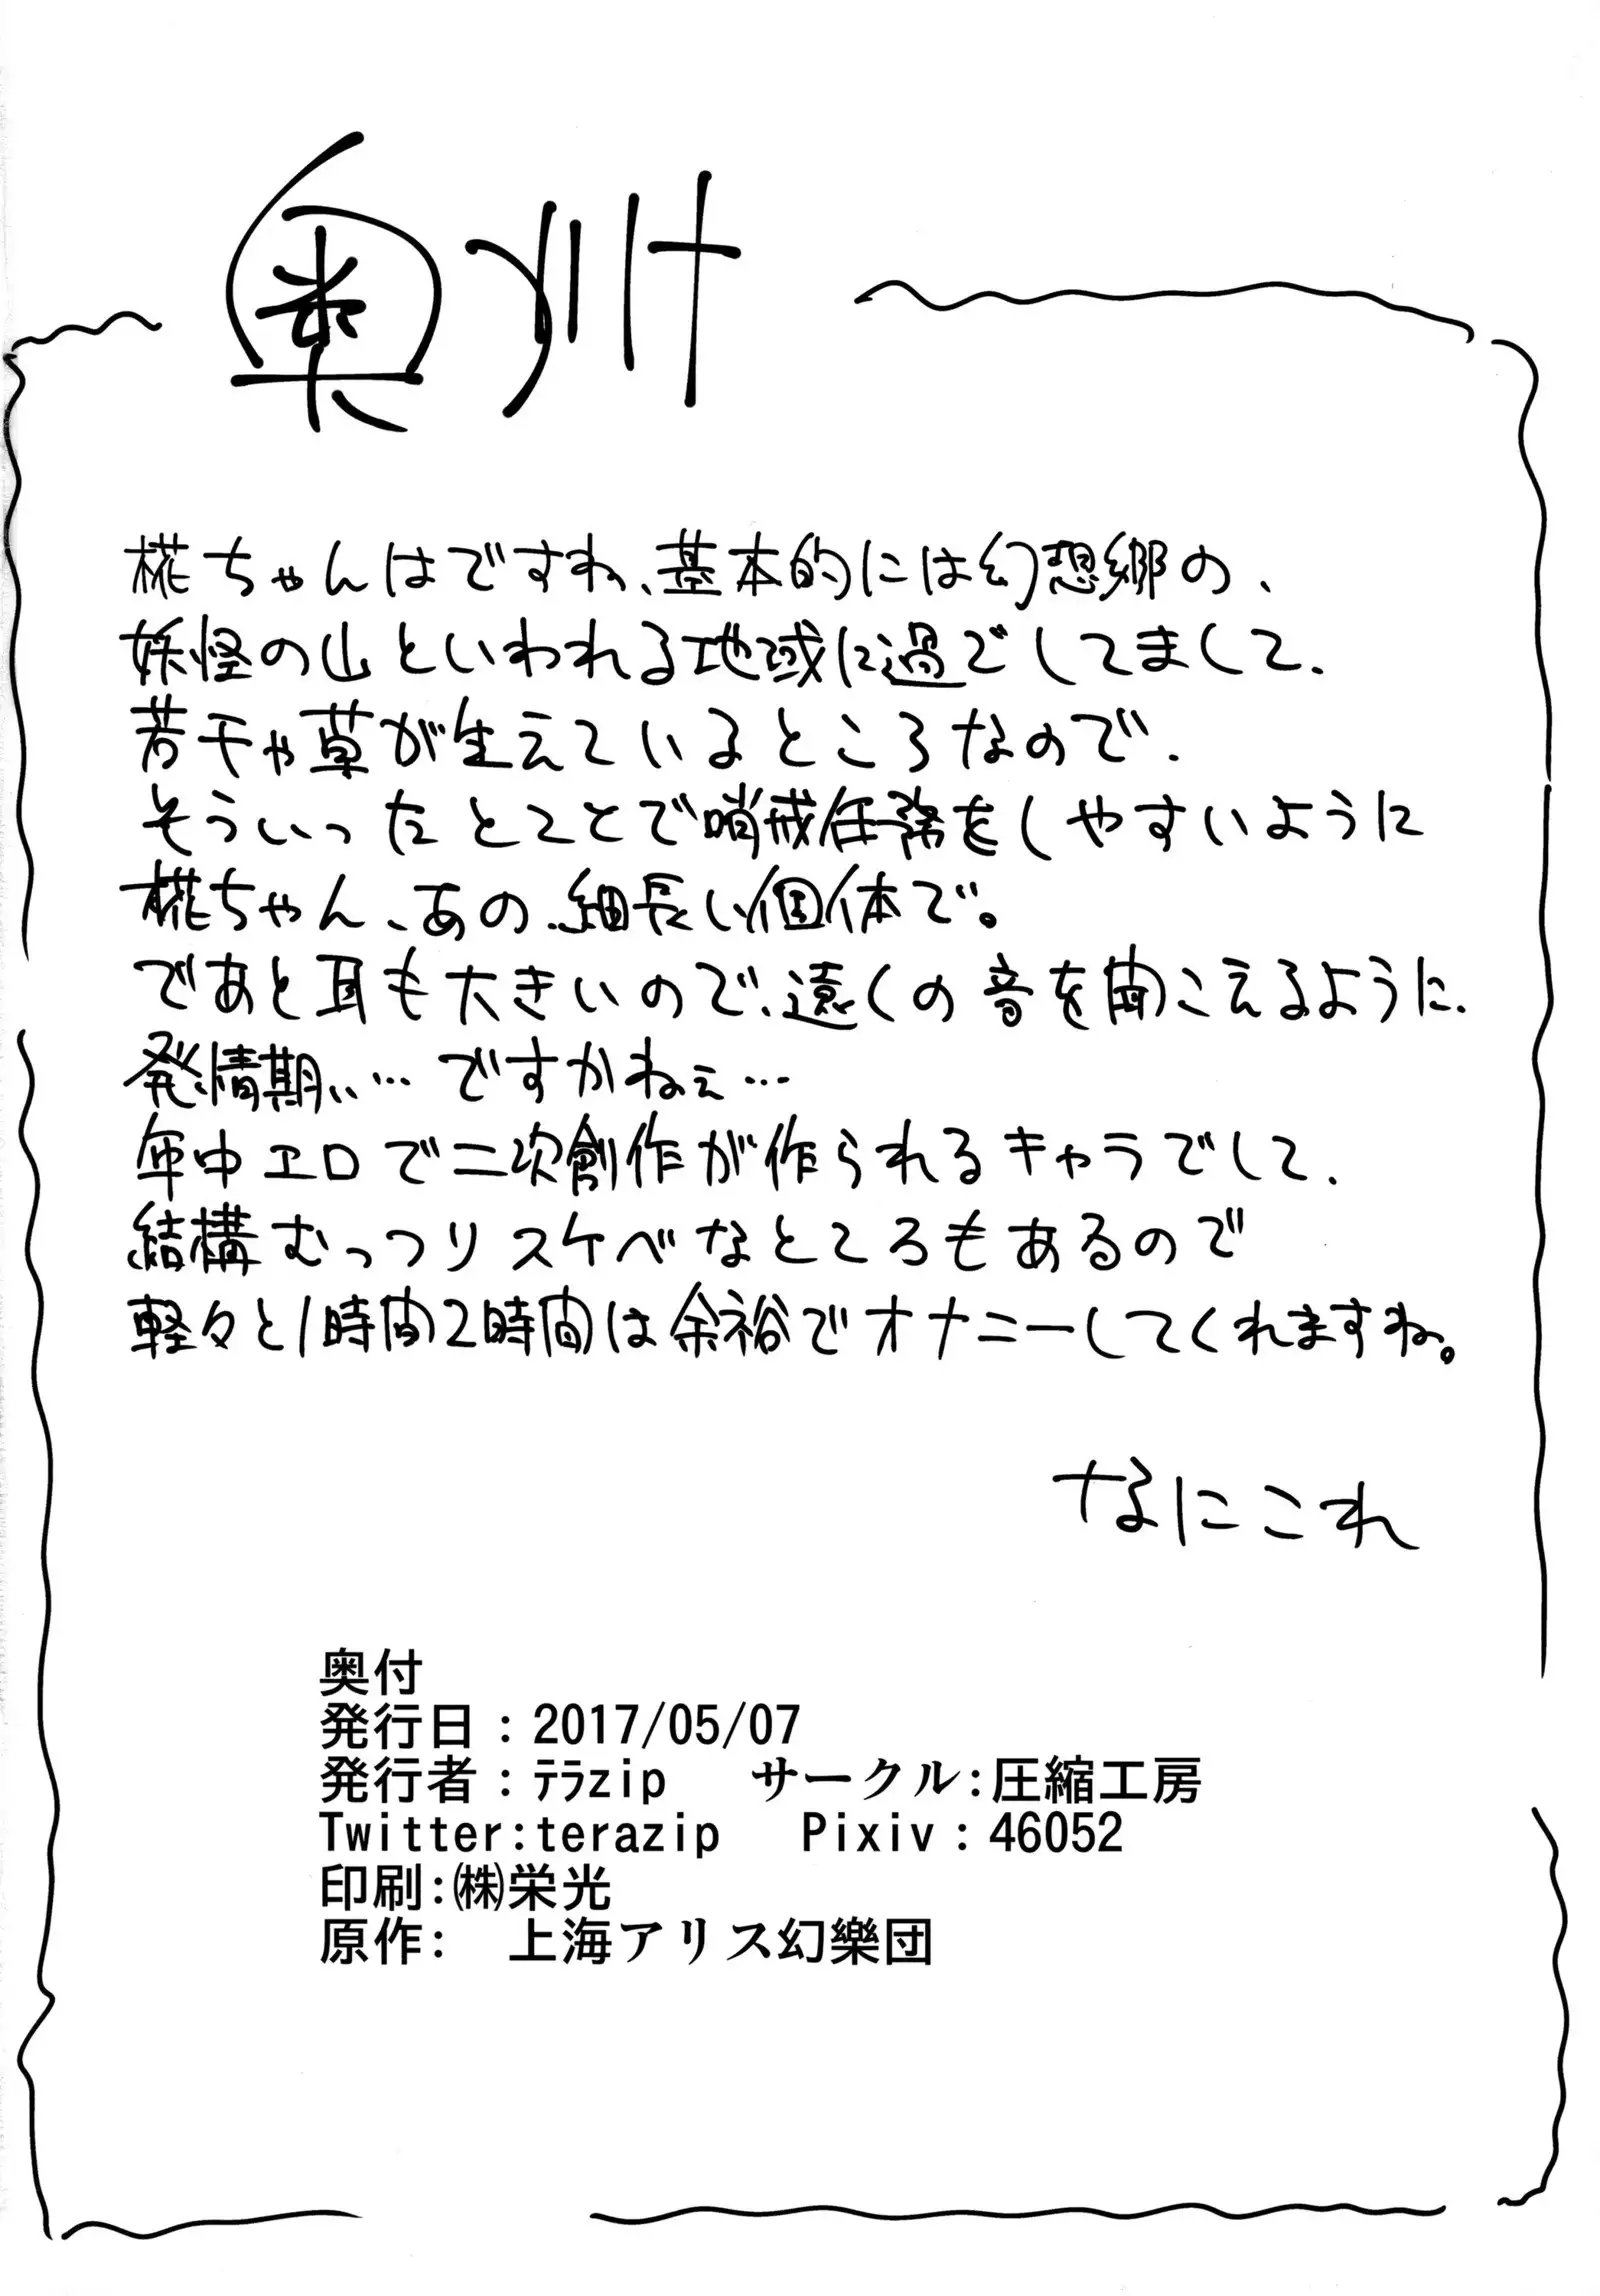 奥付
椛ちゃんはですね、基本的には幻想郷の、
妖怪の山といわれる地域に過ごしてまして、
若干や草が生えているところなので、
そういったとことで哨戒任務をしやすいように
椛ちゃん、あの、細長い個体で。
であと耳も大きいので、遠くの音を聞こえるように、
発情期ぃ…ですかねぇ…
年中エロで二次創作が作られるキャラでして、
結構むっつりスケベなところもあるので
軽々と1時間2時間は余裕でオナニーしてくれますね。
なにこれ
奥付
発行日：2017/05/07
発行者：ﾃﾗzip サークル:圧縮工房
Twitter:terazip Pixiv：46052
印刷:㈱栄光
原作: 上海アリス幻樂団